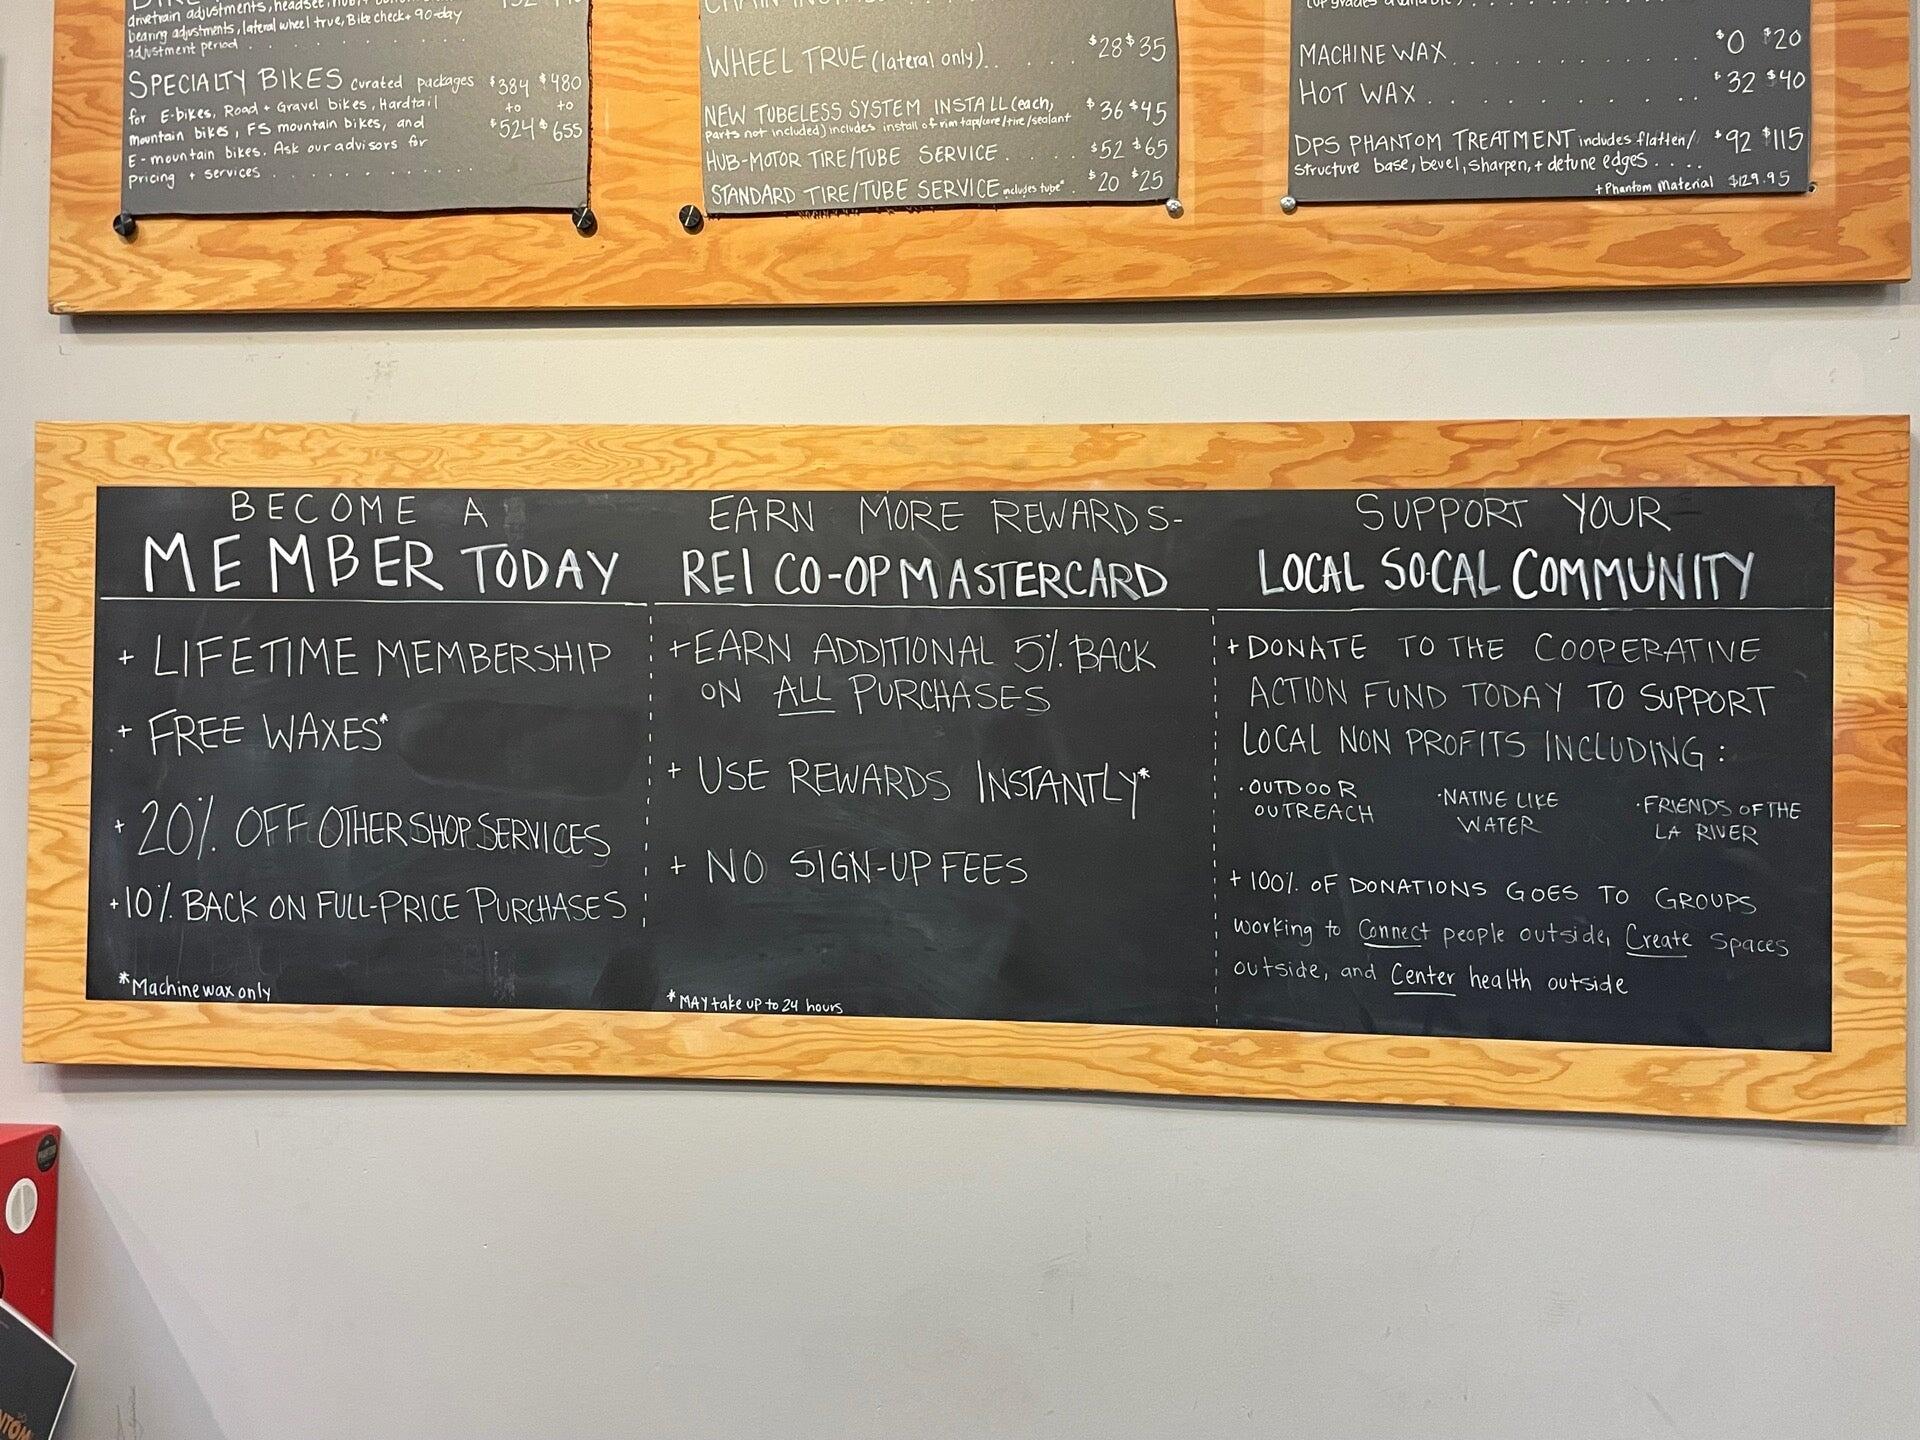 drivetrain adjustments, headset, hub +
bearing adjustments, lateral wheel true, Bike check + 90-day
adjustment period . . . . . . . . . .
SPECIALTY BIKES curated packages $384 $480
for E-bikes, Road + Gravel bikes, Hardtail to to
mountain bikes, FS mountain bikes, and $524 $655
E-mountain bikes. Ask our advisors for
pricing + services . . . . . . . . . .
WHEEL TRUE (lateral only) . . . . . $28 $35
NEW TUBELESS SYSTEM INSTALL (each, $36 $45
parts not included) includes install of rim tape/core/tire/sealant
HUB-MOTOR TIRE/TUBE SERVICE . . . . $52 $65
STANDARD TIRE/TUBE SERVICE includes tube* . $20 $25
(upgrades available)
MACHINE WAX . . . . . . . . . . $0 $20
HOT WAX . . . . . . . . . . $32 $40
DPS PHANTOM TREATMENT includes flatten/ $92 $115
structure base, bevel, sharpen, + detune edges . . . .
+ Phantom Material $129.95
BECOME A
MEMBER TODAY
+ LIFETIME MEMBERSHIP
+ FREE WAXES*
+ 20% OFF OTHER SHOP SERVICES
+ 10% BACK ON FULL-PRICE PURCHASES
*Machine wax only
EARN MORE REWARDS-
REI CO-OP MASTERCARD
+ EARN ADDITIONAL 5% BACK
ON ALL PURCHASES
+ USE REWARDS INSTANTLY*
+ NO SIGN-UP FEES
*MAY take up to 24 hours
SUPPORT YOUR
LOCAL SOCAL COMMUNITY
+ DONATE TO THE COOPERATIVE
ACTION FUND TODAY TO SUPPORT
LOCAL NON PROFITS INCLUDING:
·OUTDOOR
OUTREACH
·NATIVE LIKE
WATER
·FRIENDS OF THE
LA RIVER
+ 100% OF DONATIONS GOES TO GROUPS
working to Connect people outside, Create spaces
outside, and Center health outside